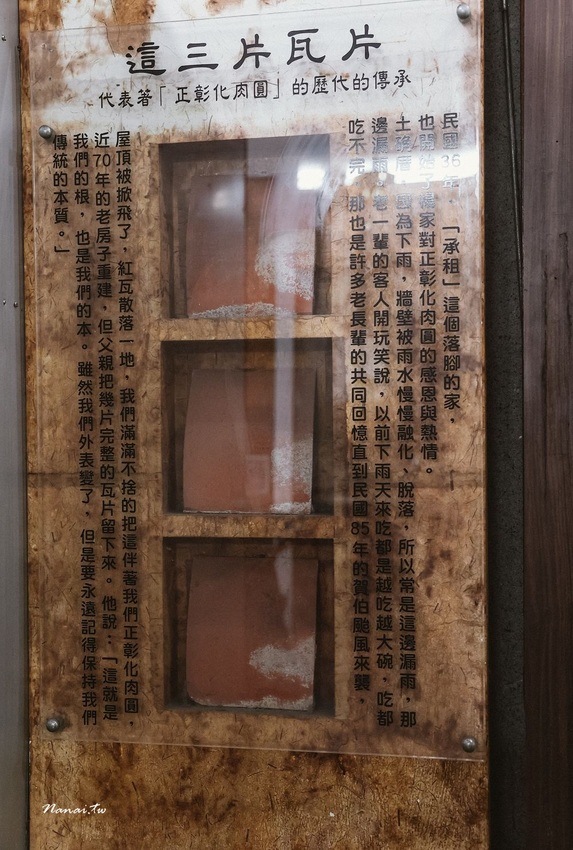 這三片瓦片
代表著「正彰化肉圓」的歷代的傳承
民國36年，「承租」這個落腳的家，
也開始了楊家對正彰化肉圓的感恩與熱情。
土埆厝，因為下雨，牆壁被雨水慢慢融化、脫落，所以常是這邊漏雨，那
邊漏雨。老一輩的客人開玩笑說，以前下雨天來吃都是越吃越大碗，吃都
吃不完，那也是許多老長輩的共同回憶直到民國85年的賀伯颱風來襲，
屋頂被掀飛了，紅瓦散落一地，我們滿滿不捨的把這伴著我們正彰化肉圓，
近70年的老房子重建，但父親把幾片完整的瓦片留下來。他說：「這就是
我們的根，也是我們的本。雖然我們外表變了，但是要永遠記得保持我們
傳統的本質。」
Nanai.tw